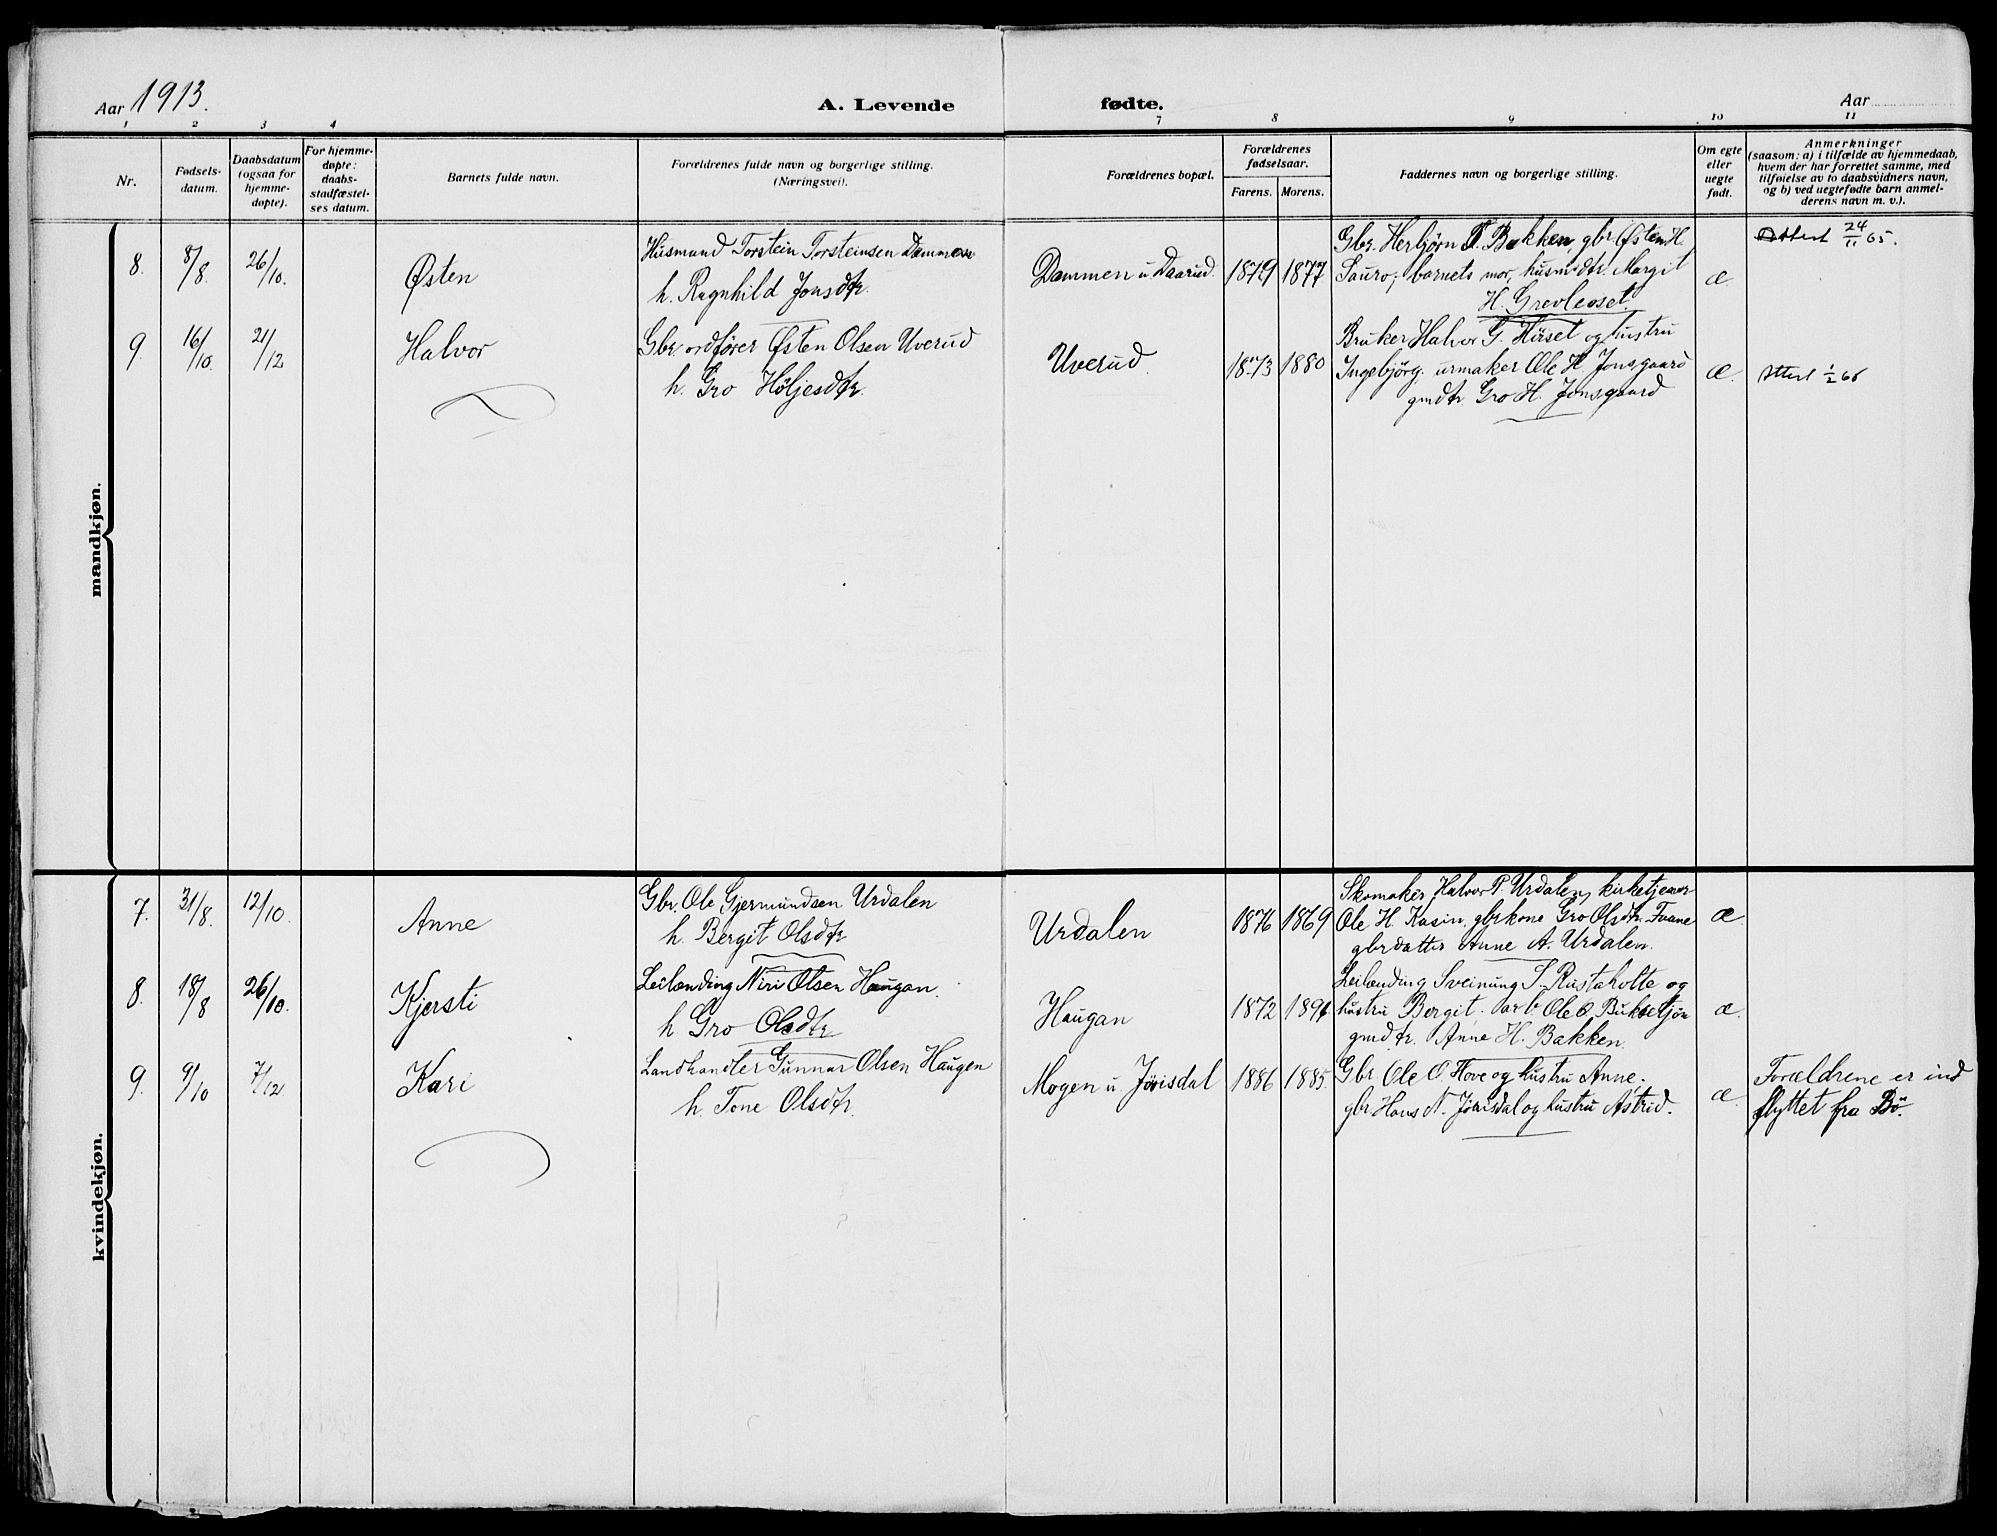 Aar 1913.
A. Levende fødte.
Aar
1 2 3 4 7 8 9 10 11
Nr.
Fødsels-
datum.
Daabsdatum
(ogsaa for
hjemme-
døpte).
For hjemme-
døpte:
daabs-
stadfæstel-
ses datum.
Barnets fulde navn.
Forældrenes fulde navn og borgerlige stilling.
(Næringsvei).
Forældrenes bopæl.
Forældrenes
fødselsaar.
Farens. Morens.
Faddernes navn og borgerlige stilling.
Om egte
eller
uegte
født.
Anmerkninger
(saasom: a) i tilfælde av hjemmedaab,
hvem der har forrettet samme, med
tilføielse av to daabsvidners navn,
og b) ved uegtefødte barn anmel-
derens navn m. v.).
mandkjøn.
8. 8/8 26/10. Østen
Husmand Torstein Torsteinsen Dammen
h. Ragnhild Jonsdtr.
Dammen u. Daarud. 1879 1877
Gbr. Herbjørn T. Bakken, gbr. Østen H.
Sauro, barnets mor, husm.dtr. Margit
H. Grevleoset.
æ
Attest 24/11 65.
9. 16/10. 21/12 Halvor
Gbr. ordfører Østen Olsen Uverud
h. Gro Høljesdtr.
Uverud. 1873 1880
Bruker Halvor G. Hirset og hustru
Ingebjörg, urmaker Ole H. Jonsgaard
gmdtr. Gro H. Jonsgaard
æ.
Attest 1/2 66
kvindekjøn.
7. 31/8. 12/10. Anne
Gbr. Ole Gjermundsen Urdalen
h. Bergit Olsdtr
Urdalen 1876 1869
Skomaker Halvor P. Urdalen, kirketjener
Ole H. Kasin, gbrkone Gro Olsdtr. Fraane
gbrdatter Anne A. Urdalen.
æ
8. 18/8 26/10. Kjersti
Leilænding Niri Olsen Haugan.
h Gro Olsdtr
Haugan 1872 1891
Leilænding Sveinung S. Rustaholte og
hustru Bergit. arb. Ole O. Bukketjøn
gmdtr. Anne H. Bakken.
æ.
9. 9/10 7/12. Kari
Landhandler Gunnar Olsen Haugen
h. Tone Olsdtr.
Mogen u. Jørisdal 1886 1885.
Gbr. Ole O. Hove og hustru Anne.
gbr. Hans N. Jørisdal og hustru Astrid.
æ.
Forældrene er ind
flyttet fra Bö.